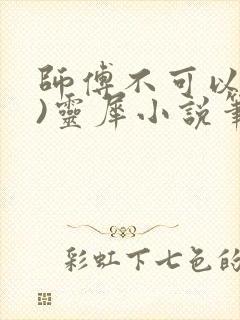 師傅不可以
)靈犀小說筆
彩虹下七色的